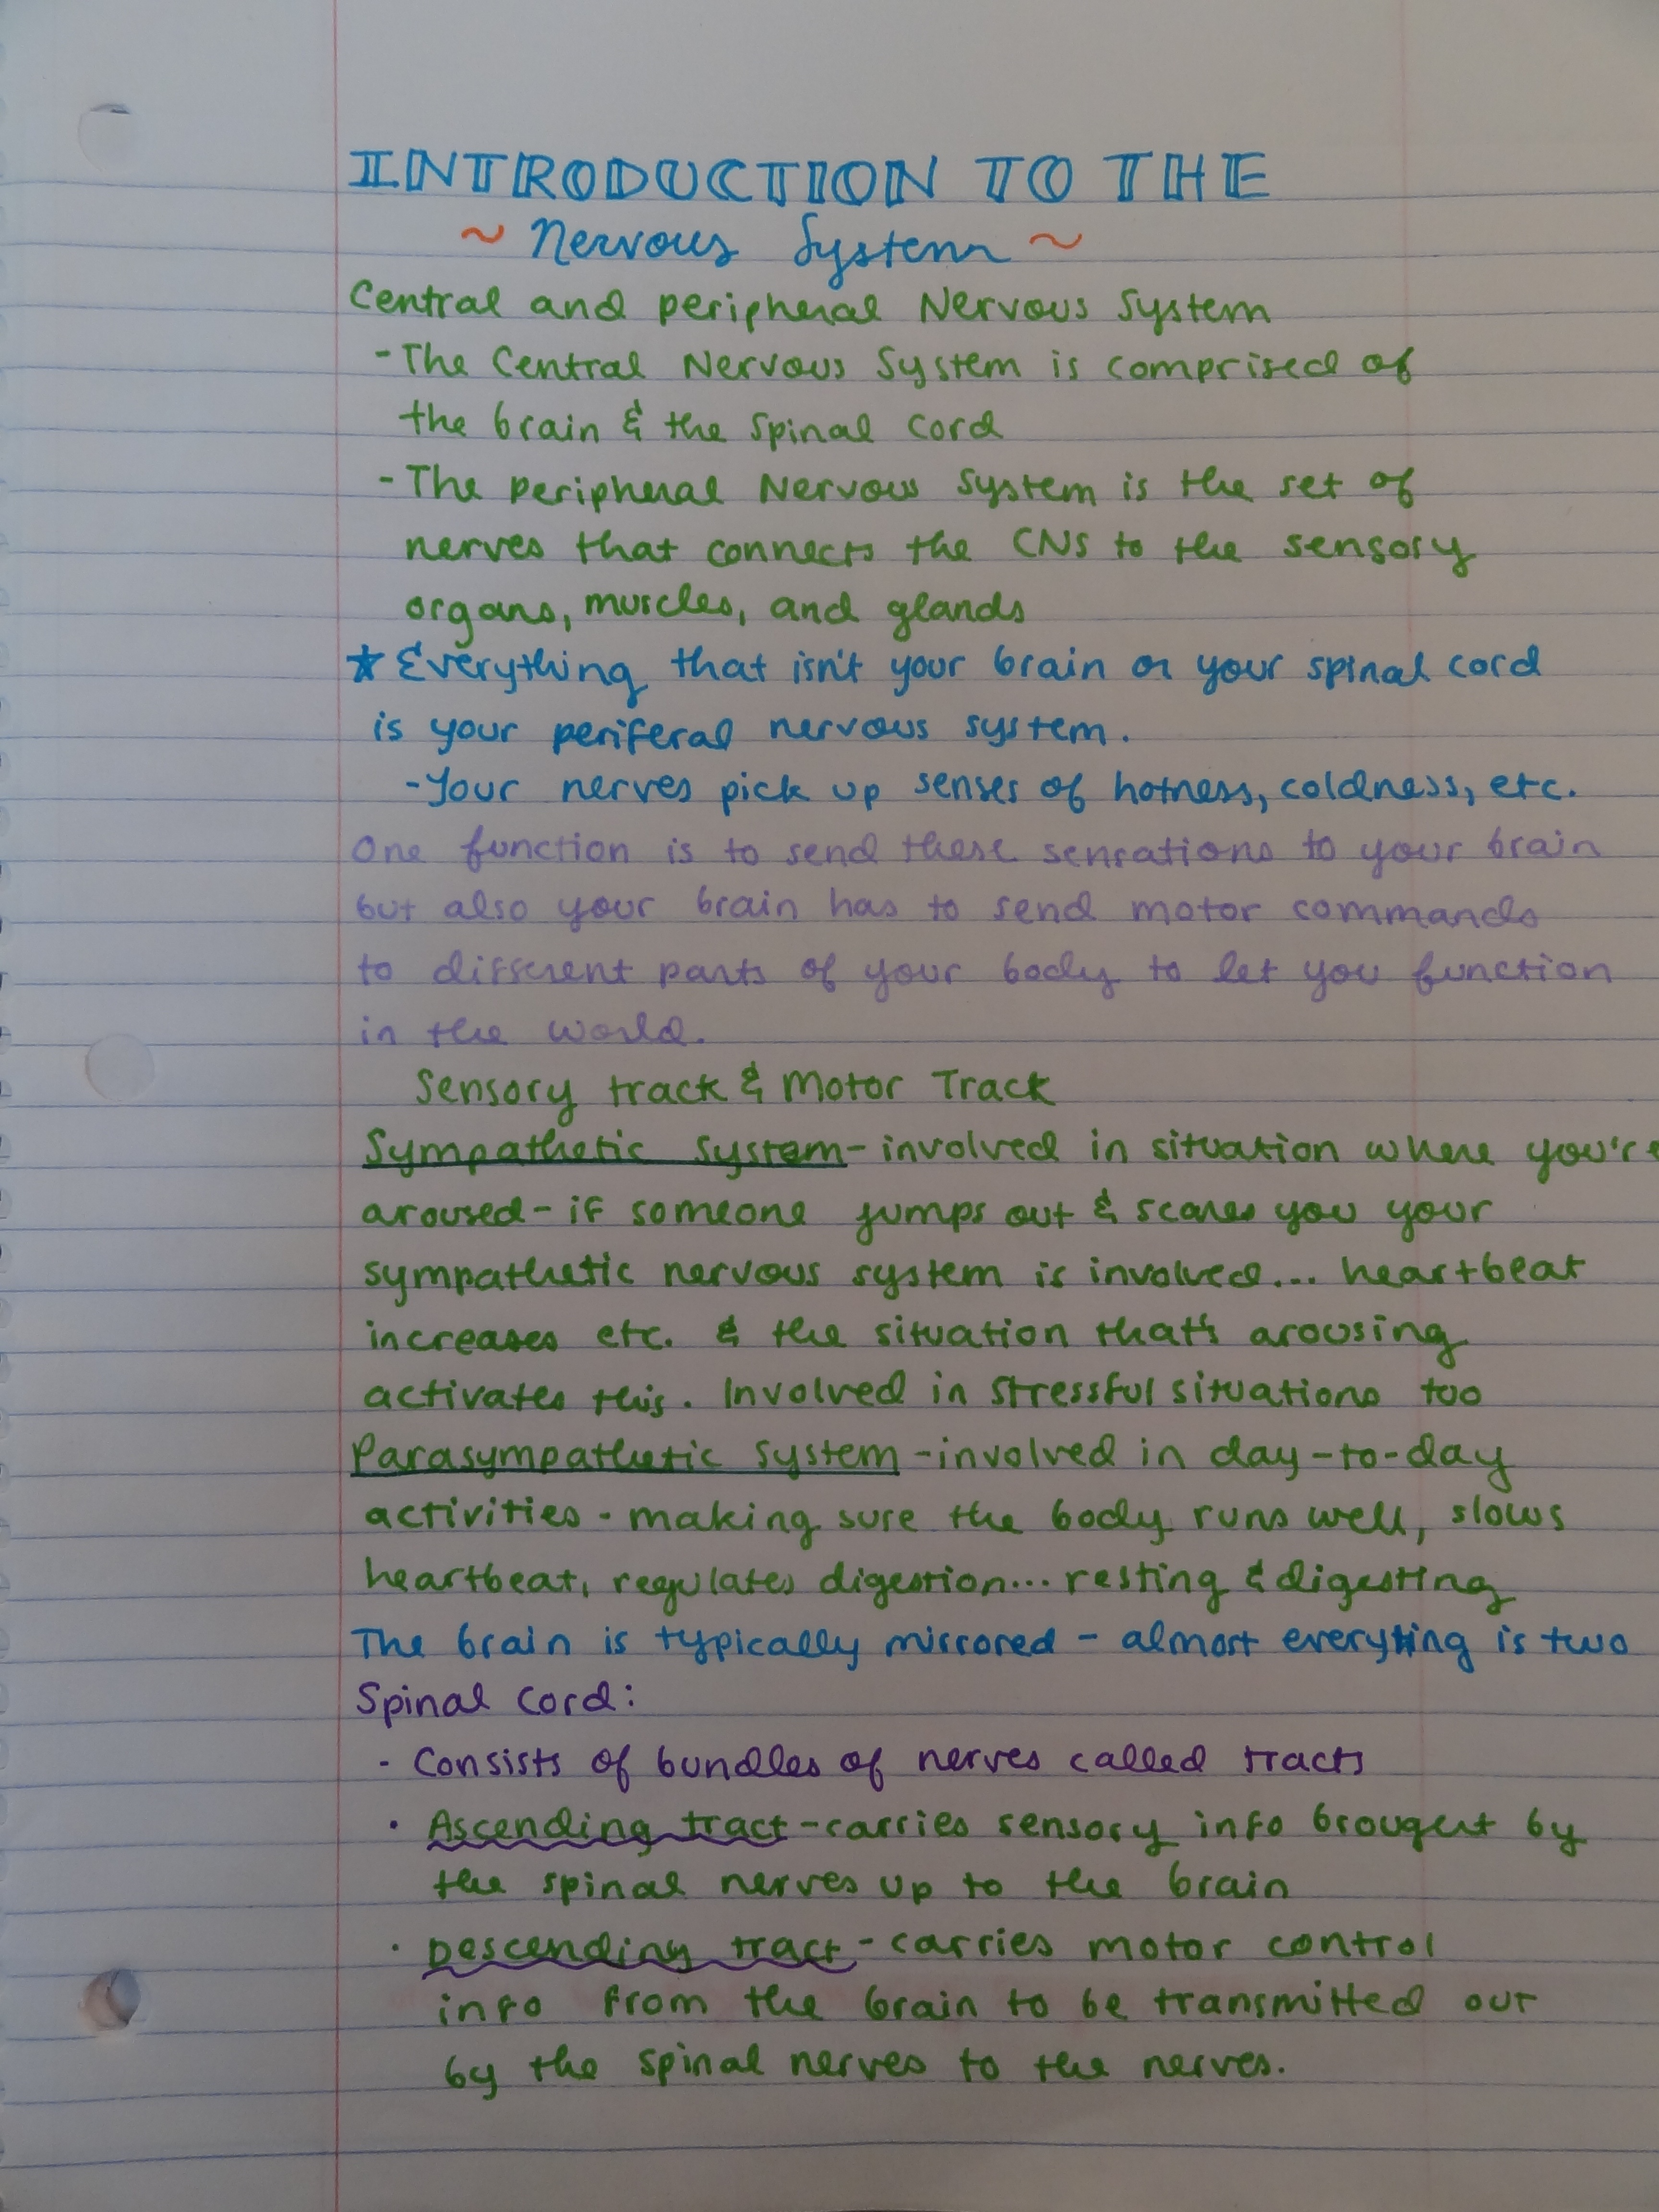 INTRODUCTION TO THE
~ Nervous System ~
Central and peripheral Nervous System
- The Central Nervous System is comprised of
the brain & the spinal cord
- The peripheral Nervous System is the set of
nerves that connects the CNS to the sensory
organs, muscles, and glands
★ Everything that isn't your brain or your spinal cord
is your periferal nervous system.
- Your nerves pick up senses of hotness, coldness, etc.
One function is to send these sensations to your brain
but also your brain has to send motor commands
to different parts of your body to let you function
in the world.
Sensory track & Motor Track
Sympathetic System - involved in situation where you're
aroused - if someone jumps out & scares you your
sympathetic nervous system is involved... heartbeat
increases etc. & the situation that's arousing
activates this. Involved in stressful situations too
Parasympathetic System - involved in day-to-day
activities - making sure the body runs well, slows
heartbeat, regulates digestion... resting & digesting
The brain is typically mirrored - almost everything is two
Spinal Cord:
- Consists of bundles of nerves called tracts
· Ascending tract - carries sensory info brought by
the spinal nerves up to the brain
· Descending tract - carries motor control
info from the brain to be transmitted out
by the spinal nerves to the nerves.